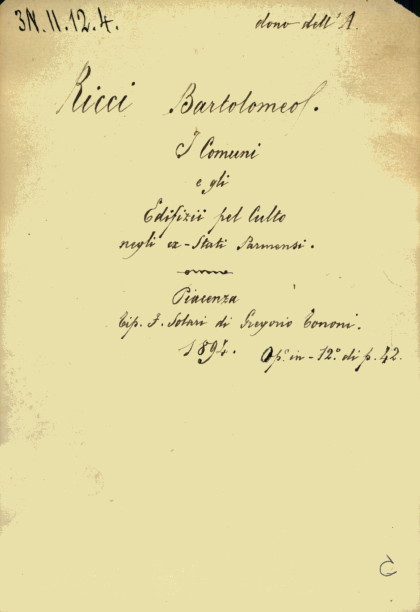 3N.11.12.4.
dono dell'A.
Ricci Bartolomeo.
I Comuni
e gli
Edifizii pel Culto
negli ex-Stati Parmensi.
Piacenza
Tip. F. Solari di Gregorio Tononi.
1894. Op.° in-12.° di p. 42.